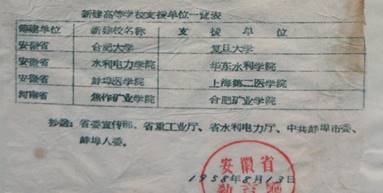 新建高等学校支援单位一览表
筹建单位 新建校名称 支援单位
安徽省 合肥大学 复旦大学
安徽省 水利电力学院 华东水利学院
安徽省 蚌埠医学院 上海第二医学院
河南省 焦作矿业学院 合肥矿业学院
抄致：省委宣传部、省重工业厅、省水利电力厅、中共蚌埠市委、
蚌埠人委。
安徽省
1958年8月13日